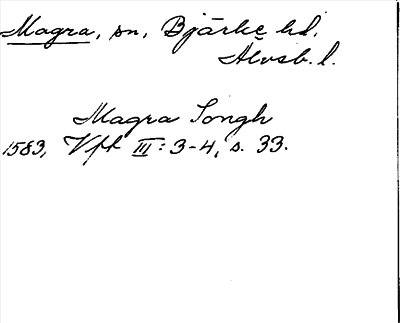 Magra, sn, Bjärke hd,
Älvsb. l.
Magra Songh
1583, Vft III: 3-4, s. 33.